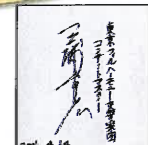 東京フィルハーモニー交響楽団
コンサートマスター
三浦章宏